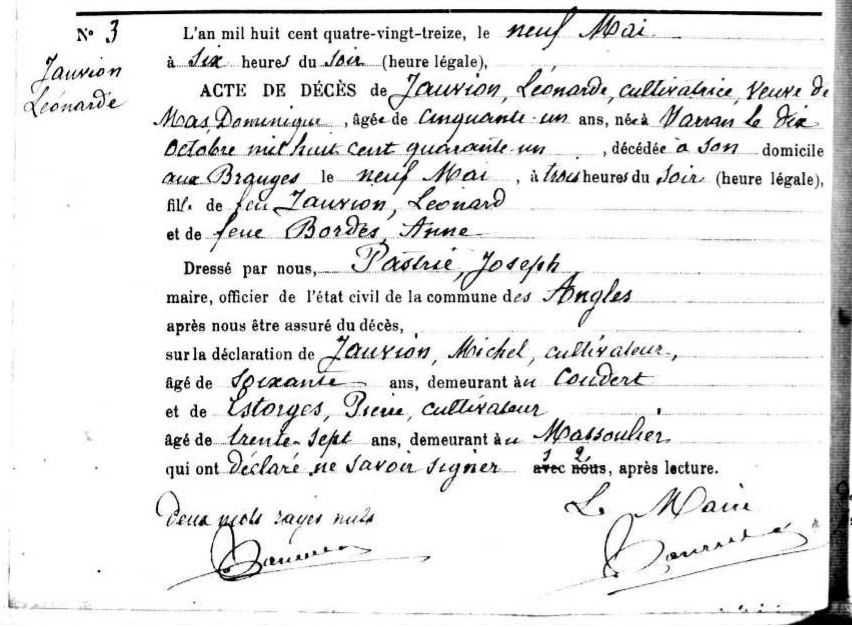 N° 3
Jauvion
Léonarde
L'an mil huit cent quatre-vingt-treize, le neuf Mai
à six heures du soir (heure légale),
ACTE DE DÉCÈS de Jauvion, Léonarde, cultivatrice, veuve de
Mas, Dominique, âgée de cinquante-un ans, née à Varran le dix
octobre mil huit cent quarante-un, décédée à son domicile
aux Branges le neuf Mai, à trois heures du soir (heure légale),
fille de feu Jauvion, Léonard
et de feue Bordes, Anne
Dressé par nous, Joseph
maire, officier de l'état civil de la commune des Angles
après nous être assuré du décès,
sur la déclaration de Jauvion, Michel, cultivateur,
âgé de soixante ans, demeurant au Coudert
et de Estorges, Pierre, cultivateur
âgé de trente-sept ans, demeurant au Massoulier
qui ont déclaré ne savoir signer avec nous, après lecture.
1 2
Deux mots rayés nuls
Le Maire